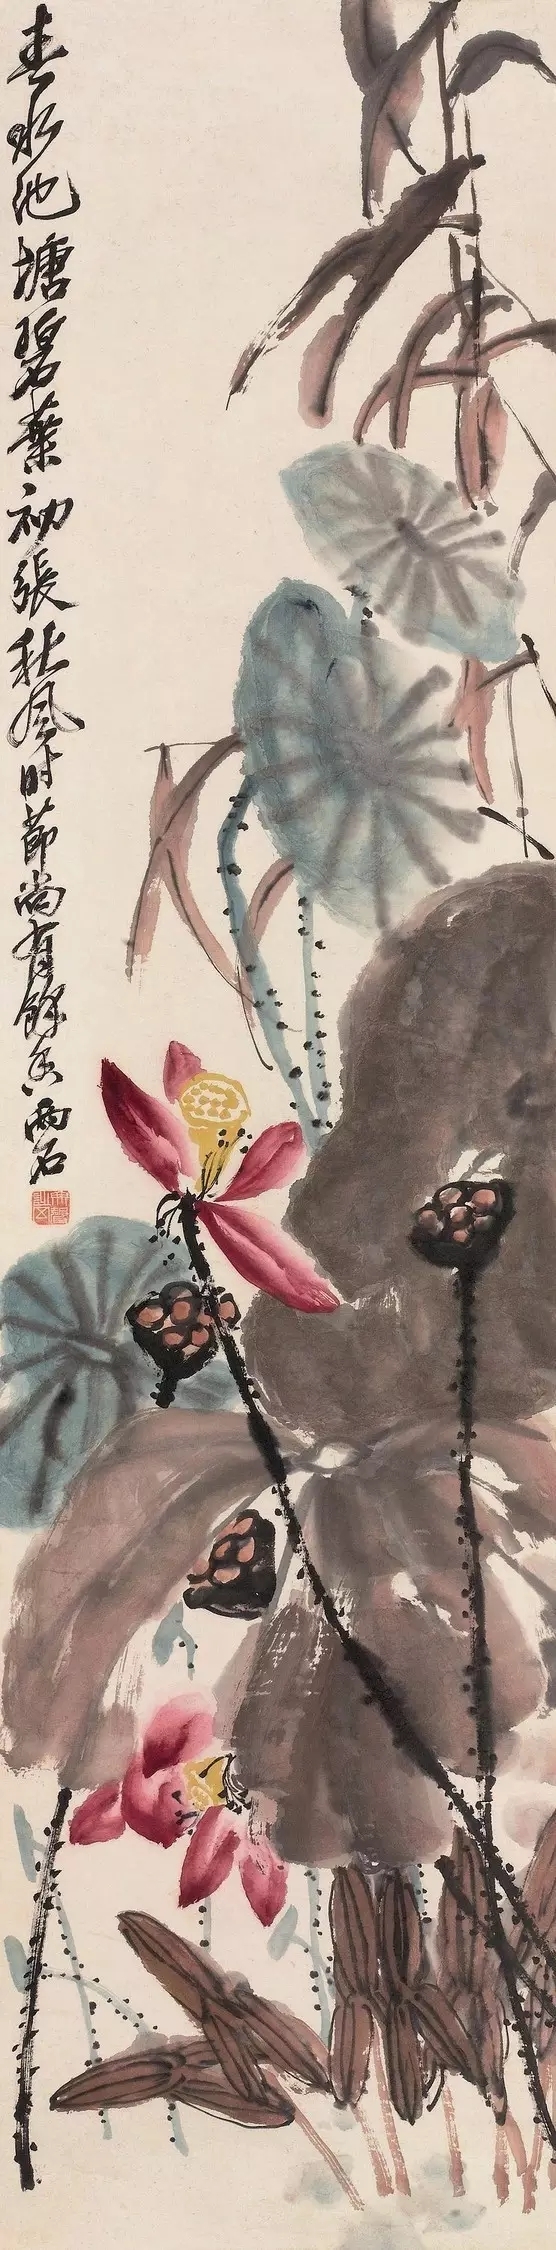 春水池塘碧葉初張秋风时節尚有餘香兩石